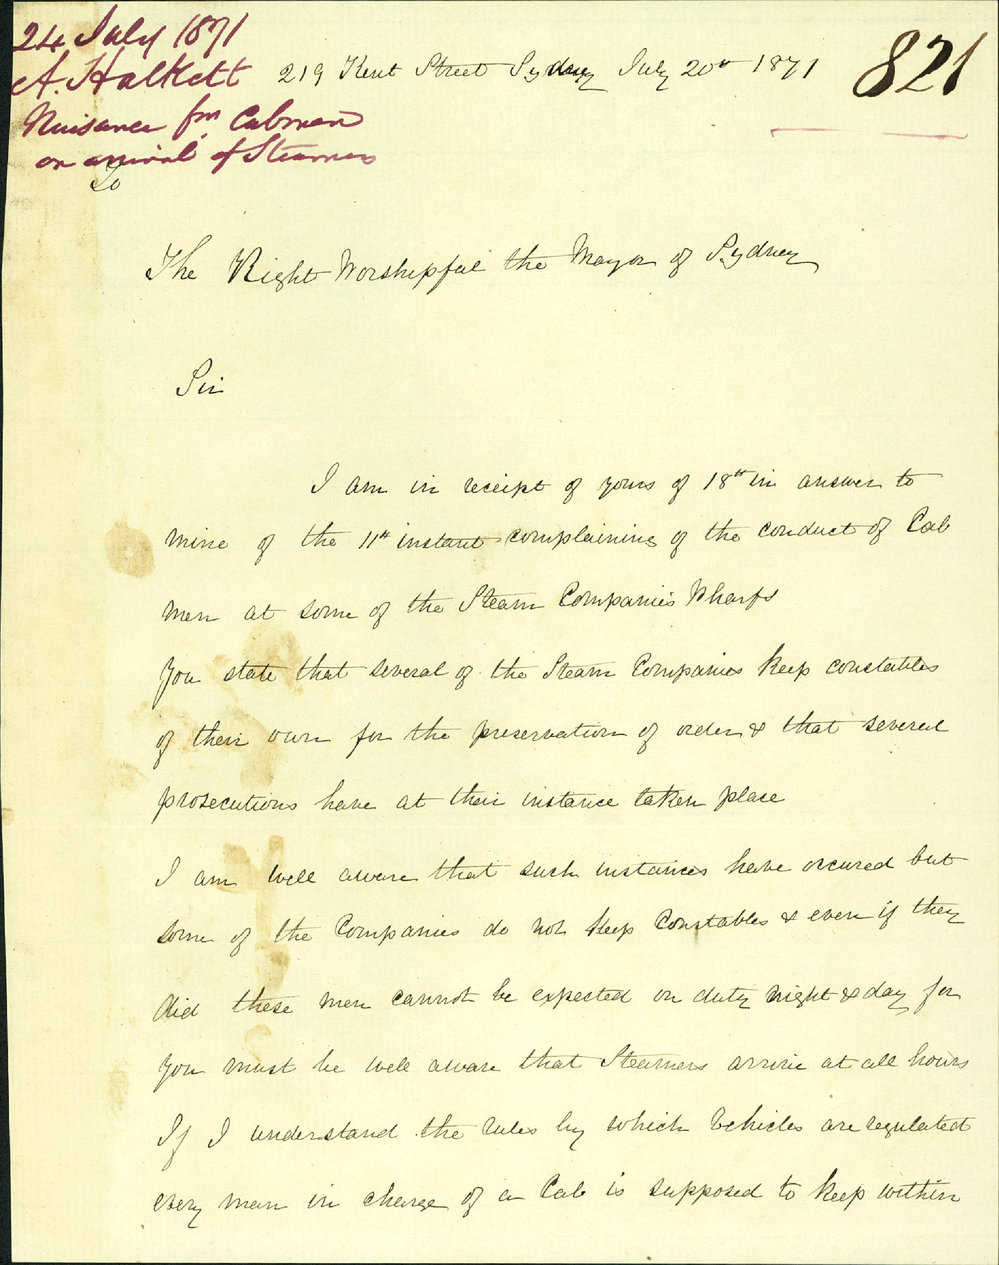 24 July 1871
A. Halkett
Nuisance fm Cabmen
on arrival of Steamers
821
219 Kent Street Sydney July 20th 1871
To
The Right Worshipful the Mayor of Sydney
Sir
I am in receipt of yours of 18th in answer to
mine of the 11th instant complaining of the conduct of Cab
men at some of the Steam Companies Wharfs
You state that several of the Steam Companies keep constables
of their own for the preservation of order & that several
prosecutions have at their instance taken place
I am well aware that such instances have occured but
some of the Companies do not keep Constables & even if they
did these men cannot be expected on duty night & day for
you must be well aware that Steamers arrive at all hours
If I understand the rules by which Vehicles are regulated
every man in charge of a Cab is supposed to keep within